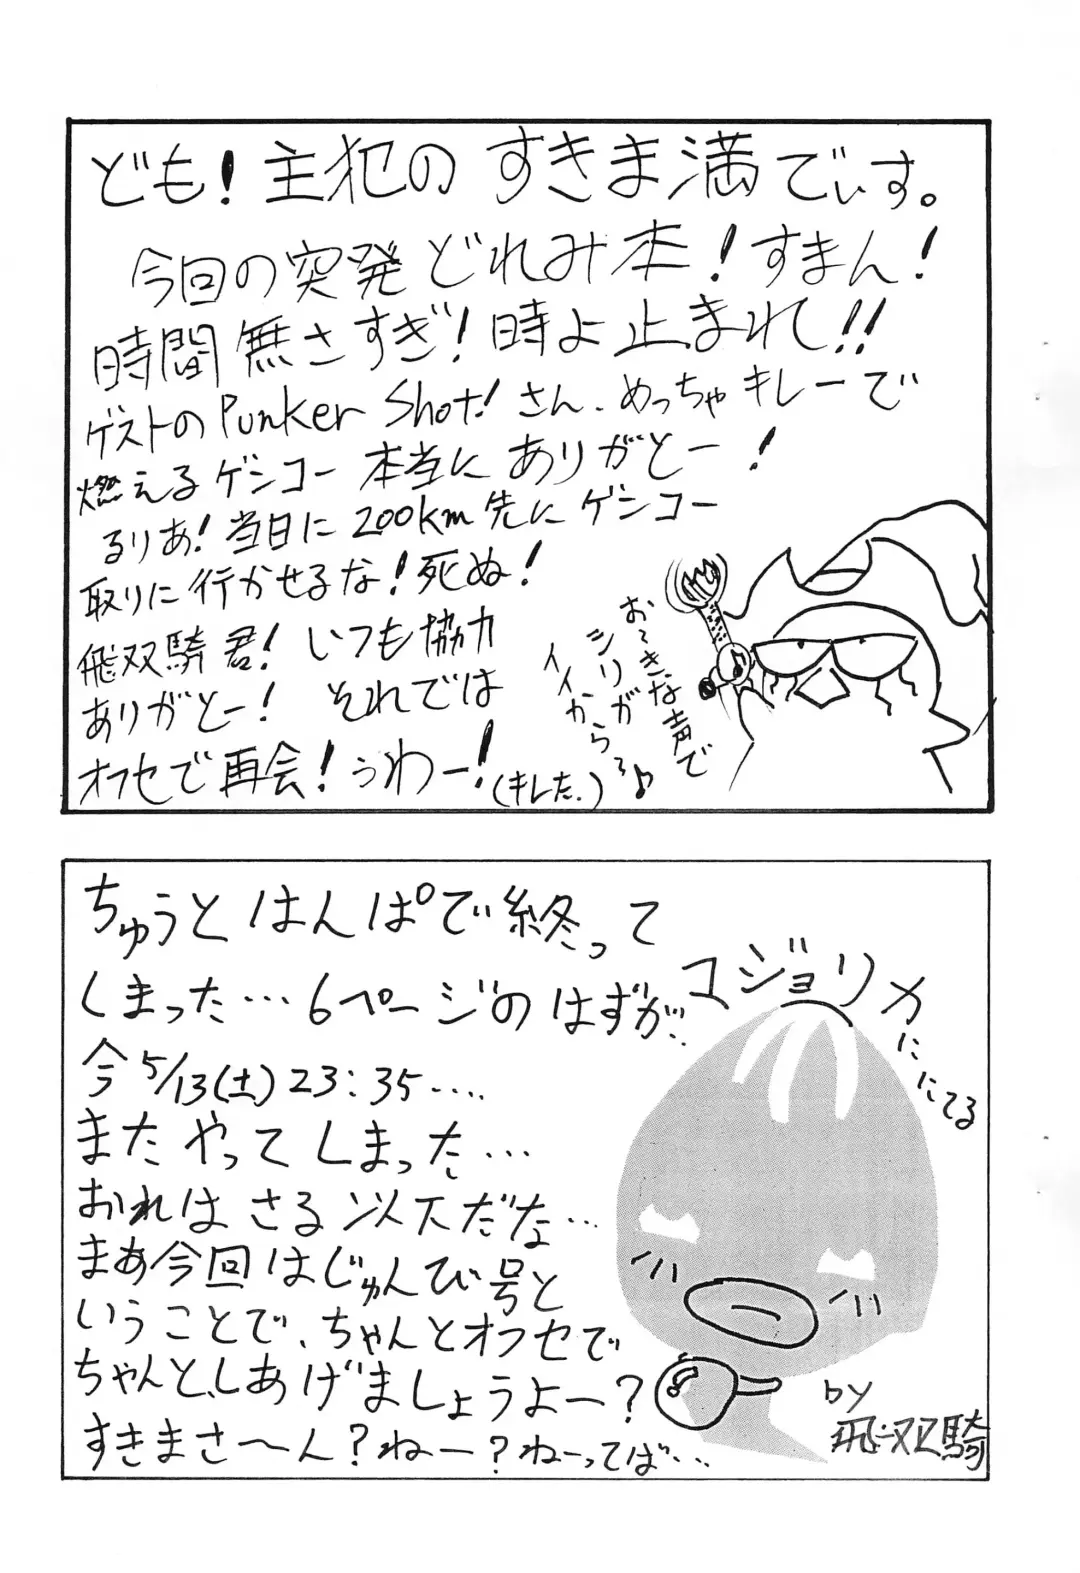 ども!主犯のすきま満でぃす。
今回の突発どれみ本!すまん!
時間無さすぎ!時よ止まれ!!
ゲストのPunker Shot!さん、めっちゃキレーで
燃えるゲンコー本当にありがとー!
るりあ!当日に200km先にゲンコー
取りに行かせるな!死ぬ!
飛双騎君!いつも協力
ありがとー!それでは
オフセで再会!うわー!
(キレた。)
お〜きな声で
シリガ
イイから〜♪
ちゅうとはんぱで終って
しまった…6ページのはずが‥
今5/13(土)23:35‥‥
またやってしまった…
おれはさる以下だな…
まあ今回はじゅんび号と
いうことで、ちゃんとオフセで
ちゃんと、しあげましょうよー?
すきまさ〜ん?ねー?ねーってば…
マジョリカににてる
by
飛双騎